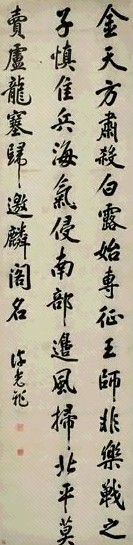 金天方肅殺白露始專征王師非樂戰之
子慎隹兵海氣侵南部邊風掃北平莫
賣盧龍塞歸邀麟閣名